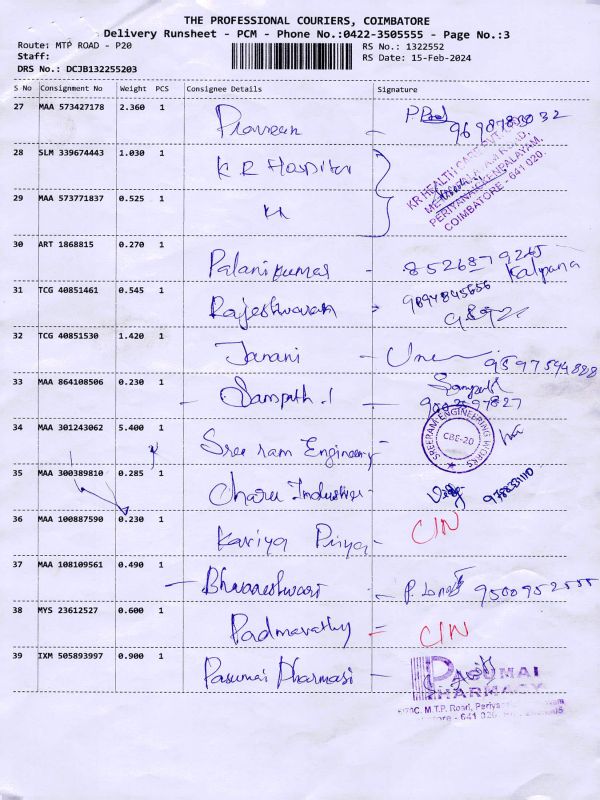 THE PROFESSIONAL COURIERS, COIMBATORE
Delivery Runsheet - PCM - Phone No.:0422-3505555 - Page No.:3
Route: MTP ROAD - P20 RS No.: 1322552
Staff: RS Date: 15-Feb-2024
DRS No.: DCJB132255203
S No Consignment No Weight PCS Consignee Details Signature
27 MAA 573427178 2.360 1
Praveen
28 SLM 339674443 1.030 1
K R Hospital
KR HEALTH CARE PVT
PERIYANAICKENPALAYAM,
COIMBATORE - 641 020.
29 MAA 573771837 0.525 1
30 ART 1868815 0.270 1
Palanikumar - 8526879265
Kalpana
31 TCG 40851461 0.545 1
Rajeshwaran 9894845656
32 TCG 40851530 1.420 1
Janani - 9597594828
33 MAA 864108506 0.230 1
- Sampath.I Sampath
34 MAA 301243062 5.400 1
Sree ram Engineery
SREERAM ENGINEERING WORKS
CBE-20
35 MAA 300389810 0.285 1
Charu Industries -
36 MAA 100887590 0.230 1
Kaviya Priya - CIN
37 MAA 108109561 0.490 1
- Bhuvaneshwari
38 MYS 23612527 0.600 1
Padmavathy = CIN
39 IXM 505893997 0.900 1
Pasumai Pharmasi -
PASUMAI
PHARMACY
M.T.P. Road,